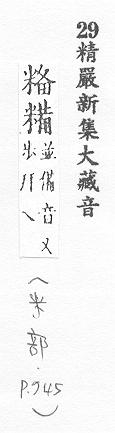 29精嚴新集大藏音
𥻅糒並備音又
步拜乀
(米部．
P.745)